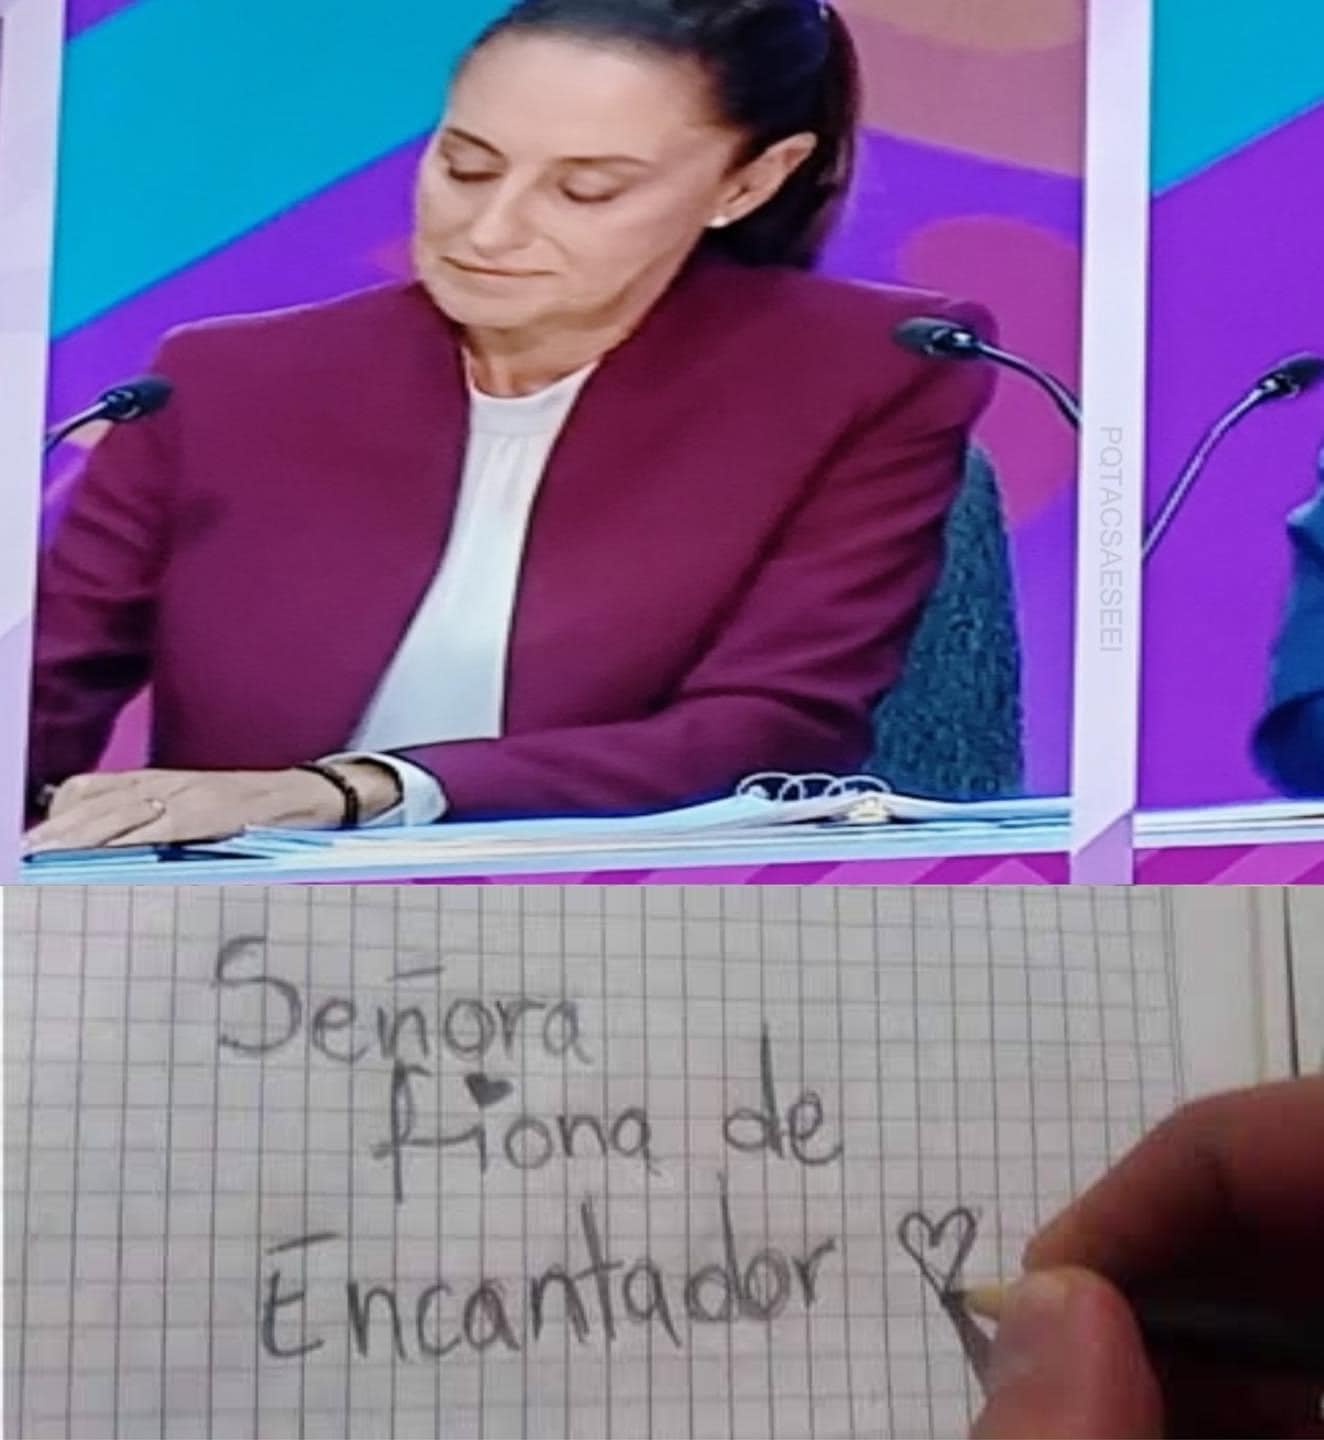 PQTACSAESEEI
Señora
fiona de
Encantador